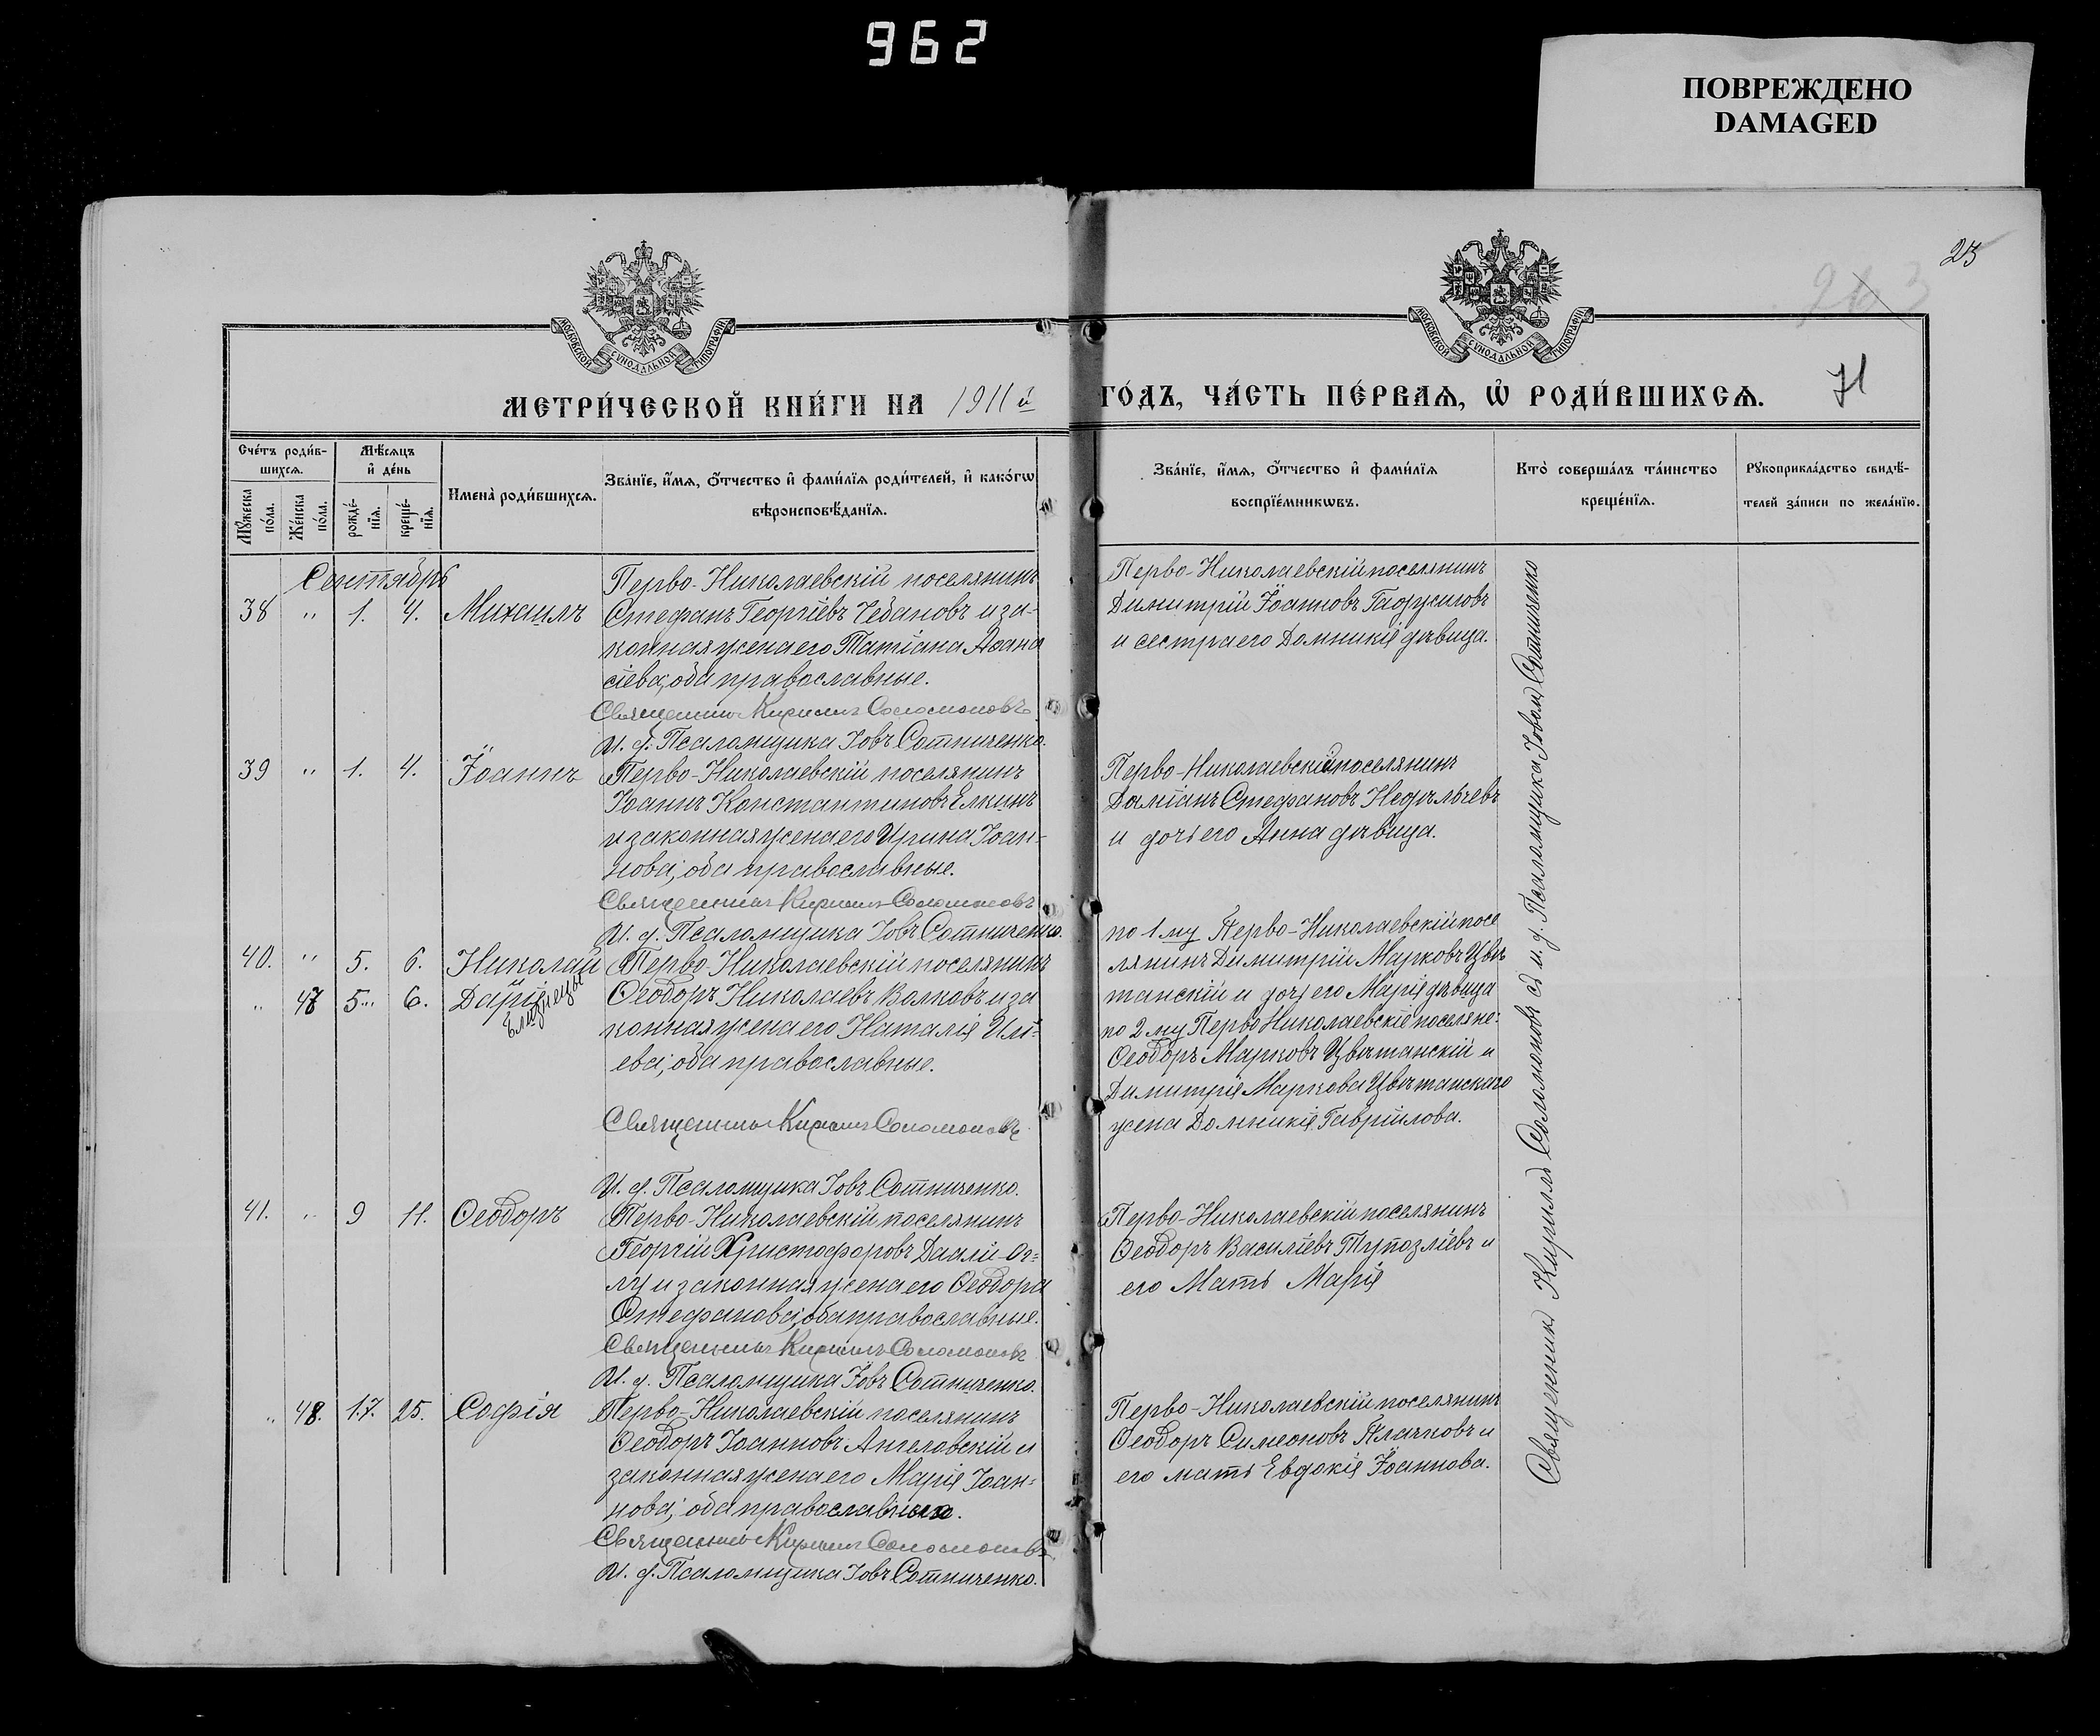 962
ПОВРЕЖДЕНО
DAMAGED
23
71
МОСКОВСКОЙ СѴНОДАЛЬНОЙ ТИПОГРАФІИ
МОСКОВСКОЙ СѴНОДАЛЬНОЙ ТИПОГРАФІИ
МЕТРИ́ЧЕСКОЙ КНИ́ГИ НА 1911 й ГО́ДЪ, ЧА́СТЬ ПЕ́РВАѦ, Ѽ РОДИ́ВШИХСѦ.
Сче́тъ роди́в-
шихсѧ.
Мꙋ́жеска
по́ла.
Же́нска
по́ла.
Мѣ́сѧцъ
и҆ де́нь
рожде́-
нїѧ.
креще́-
нїѧ.
Имена̀ роди́вшихсѧ.
Зва́нїе, и҆́мѧ, ѻ҆́тчество и҆ фами́лїѧ роди́телей, и҆ како́гѡ
вѣроисповѣ́данїѧ.
Зва́нїе, и҆́мѧ, ѻ҆́тчество и҆ фами́лїѧ
воспрїе́мникѡвъ.
Кто̀ соверша́лъ та́инство
креще́нїѧ.
Рꙋкоприкла́дство свидѣ́-
телей за́писи по жела́нїю.
Сентябрь
38 " 1. 4. Михаилъ
Перво-Николаевскій поселянинъ
Стефанъ Георгіевъ Чебановъ и за-
конная жена его Татіана Аѳана
сіева; оба православные.
Священникъ Кириллъ Соломоновъ
И. д. Псаломщика Іовъ Сотниченко.
Перво-Николаевскій поселянинъ
Димитрій Іоанновъ
и сестра его Домникія дѣвица.
39 " 1. 4. Іоаннъ
Перво-Николаевскій поселянинъ
Іоаннъ Константиновъ Елкинъ
и законная жена его Ирина Іоан-
нова; оба православные.
Священникъ Кириллъ Соломоновъ
И. д. Псаломщика Іовъ Сотниченко.
Перво-Николаевскій поселянинъ
Даміанъ Стефановъ
и дочь его Анна дѣвица.
40. " 5. 6. Николай
" 47 5. 6. Дарія
близнецы
Перво-Николаевскій поселянинъ
Ѳеодоръ Николаевъ Волковъ и за
конная жена его Наталія Илі-
ева; оба православные.
Священникъ Кириллъ Соломоновъ
И. д. Псаломщика Іовъ Сотниченко.
по 1му Перво-Николаевскій посе
лянинъ Димитрій Марковъ Цвѣ
танскій и дочь его Марія дѣвица
по 2му Перво Николаевскіе поселяне:
Ѳеодоръ Марковъ Цвѣтанскій и
Димитрія Маркова Цвѣтанскаго
жена Домникія Гавріилова.
41. " 9 11. Ѳеодоръ
Перво-Николаевскій поселянинъ
Георгій Христофоровъ Даали-Ог-
лу и законная жена его Ѳеодора
Стефанова; оба православные.
Священникъ Кириллъ Соломоновъ
И. д. Псаломщика Іовъ Сотниченко.
Перво-Николаевскій поселянинъ
Ѳеодоръ Василіевъ Тупозліевъ и
его Мать Марія
" 48. 17. 25. Софія
Перво-Николаевскій поселянинъ
Ѳеодоръ Іоанновъ Ангеловскій и
законная жена его Марія Іоан-
нова; оба православные.
Священникъ Кириллъ Соломоновъ
И. д. Псаломщика Іовъ Сотниченко.
Перво-Николаевскій поселянинъ
Ѳеодоръ Симеоновъ Плачковъ и
его мать Евдокія Іоаннова.
Священникъ Кириллъ Соломоновъ съ и. д. Псаломщика Іовомъ Сотниченко